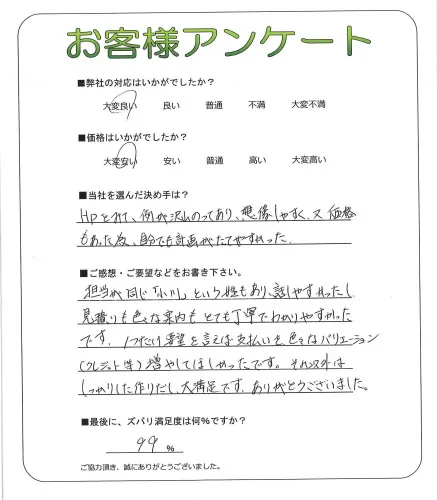 お客様アンケート
■弊社の対応はいかがでしたか？
大変良い 良い 普通 不満 大変不満
■価格はいかがでしたか？
大変安い 安い 普通 高い 大変高い
■当社を選んだ決め手は？
HPを見て、例が沢山のってあり、想像しやすく、又 価格
もあった為、自分でも計画がたてやすかった。
■ご感想・ご要望などをお書き下さい。
担当が同じ「小川」という姓もあり、話しやすかったし
見積りも色々な案内も とても丁寧でわかりやすかった
です。1つだけ要望を言えば支払いも色々なバリエーション
(クレジット等) 増やしてほしかったです。それ以外は
しっかりした作りだし、大満足です。ありがとうございました。
■最後に、ズバリ満足度は何％ですか？
99 ％
ご協力頂き、誠にありがとうございました。